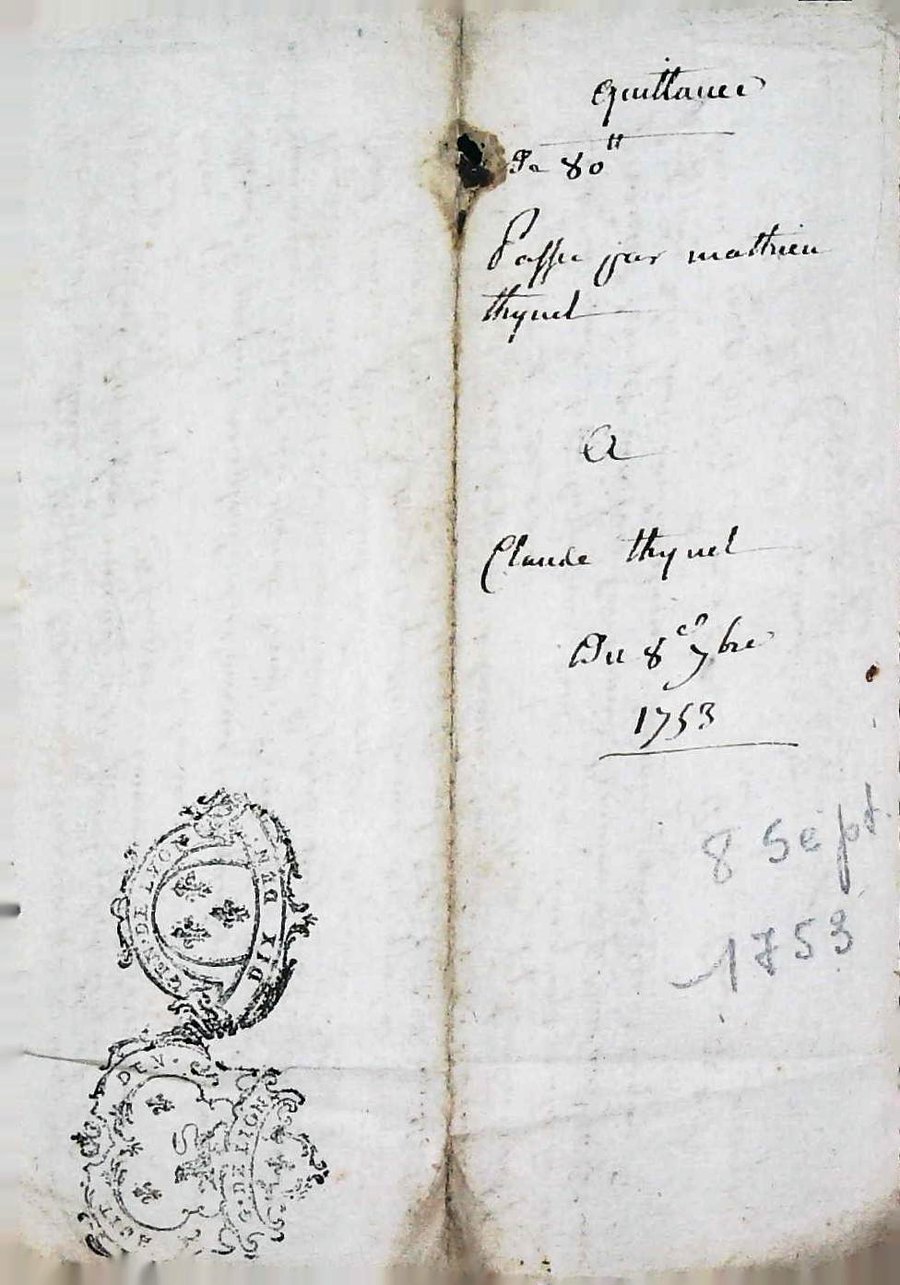 quittance
De 80ᵗᵗ
Passee par mathieu
thynel
A
Claude thynel
Du 8ᵉ 7bre
1753
8 Sept.
1753
GEN · DE LYON
DIX DEN ·
DEN ·
G · DE LION